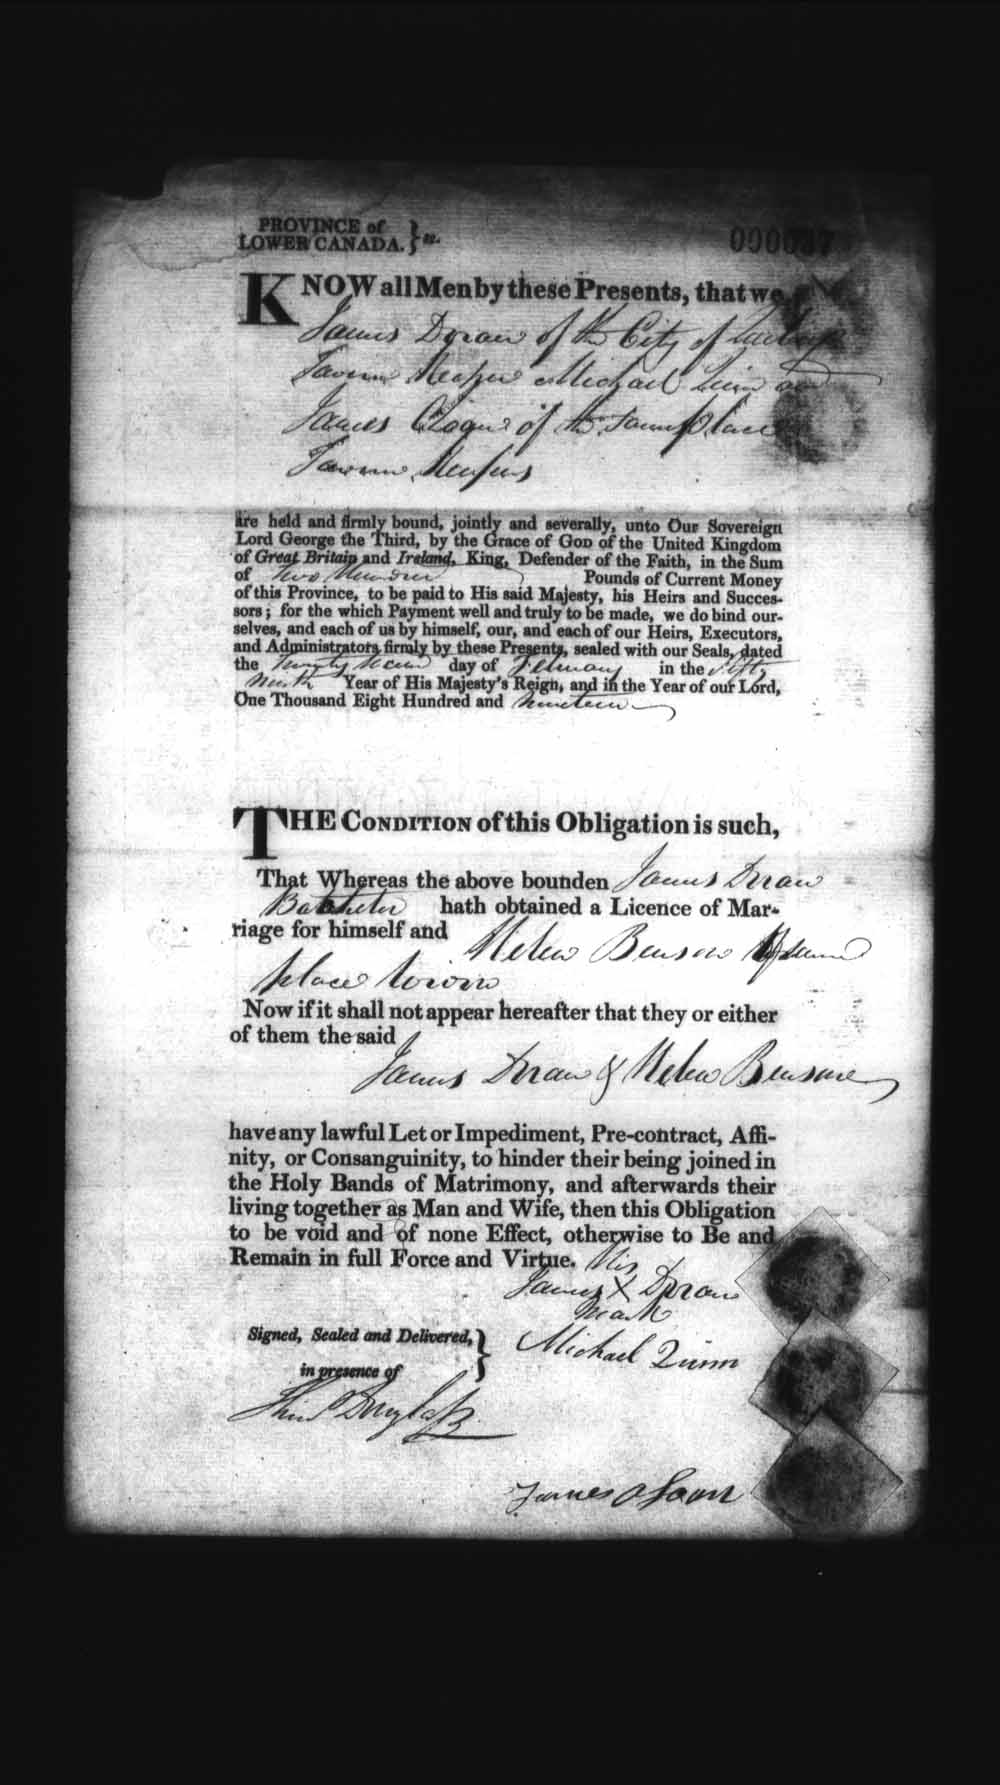 PROVINCE of
LOWER CANADA. } ss.
KNOW all Men by these Presents, that we,
James Doran of the City of Quebec
Tavern Keeper Michael Quinn and
James of the same place
Tavern Keepers
are held and firmly bound, jointly and severally, unto Our Sovereign
Lord George the Third, by the Grace of GOD of the United Kingdom
of Great Britain and Ireland, King, Defender of the Faith, in the Sum
of two Hundred Pounds of Current Money
of this Province, to be paid to His said Majesty, his Heirs and Succes-
sors; for the which Payment well and truly to be made, we do bind our-
selves, and each of us by himself, our, and each of our Heirs, Executors,
and Administrators firmly by these Presents, sealed with our Seals, dated
the Twenty Second day of February in the fifty
ninth Year of His Majesty's Reign, and in the Year of our Lord,
One Thousand Eight Hundred and nineteen
THE CONDITION of this Obligation is such,
That Whereas the above bounden James Doran
Batchelor hath obtained a Licence of Mar-
riage for himself and Helen Benson of same
place
Now if it shall not appear hereafter that they or either
of them the said
James Doran & Helen Benson
have any lawful Let or Impediment, Pre-contract, Affi-
nity, or Consanguinity, to hinder their being joined in
the Holy Bands of Matrimony, and afterwards their
living together as Man and Wife, then this Obligation
to be void and of none Effect, otherwise to Be and
Remain in full Force and Virtue.
His
James X Doran
Mark
Signed, Sealed and Delivered, }
in presence of
Michael Quinn
Douglass
James